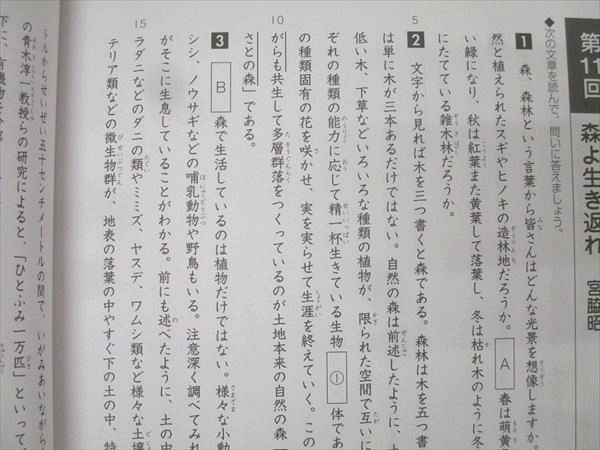 第11回 森よ生き返れ 宮脇昭
◆次の文章を読んで、問いに答えましょう。
1 森、森林という言葉から皆さんはどんな光景を想像しますか。
然と植えられたスギやヒノキの造林地だろうか。 A 春は萌黄
い緑になり、秋は紅葉また黄葉して落葉し、冬は枯れ木のように冬
にたてている雑木林だろうか。
5
2 文字から見れば木を三つ書くと森である。森林は木を五つ書
は単に木が三本あるだけではない。自然の森は前述したように、
低い木、下草などいろいろな種類の植物が、限られた空間で互いに
ぞれの種類の能力に応じて精一杯生きている生物 ① 体であ
の種類固有の花を咲かせ、実を実らせて生涯を終えていく。この
10
がらも共生して多層群落をつくっているのが土地本来の自然の森
さとの森」である。
3 B 森で生活しているのは植物だけではない。様々な小動
シシ、ノウサギなどの哺乳動物や野鳥もいる。注意深く調べてみれ
がそこに生息していることがわかる。前にも述べたように、土の中
ラダニなどのダニの類やミミズ、ヤスデ、ワムシ類など様々な土壌
15
テリア類などの微生物群が、地表の落葉の中やすぐ下の土の中、特
トルからせいぜい五十センチメートルの間で、いがみあいながら
の青木淳一教授らの研究によると、「ひとふみ一万匹」といって